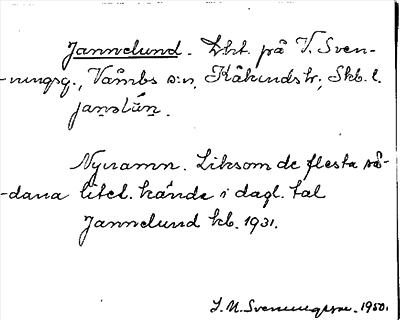 Jannelund. Lht. på V. Sven-
-ningsg., Våmbs s:n, Kåkinds hr, Skb. l.
janslún.
Nynamn. Liksom de flesta så-
-dana litet kända i dagl. tal
Jannelund kb. 1931.
S. N. Svenungsson. 1950.